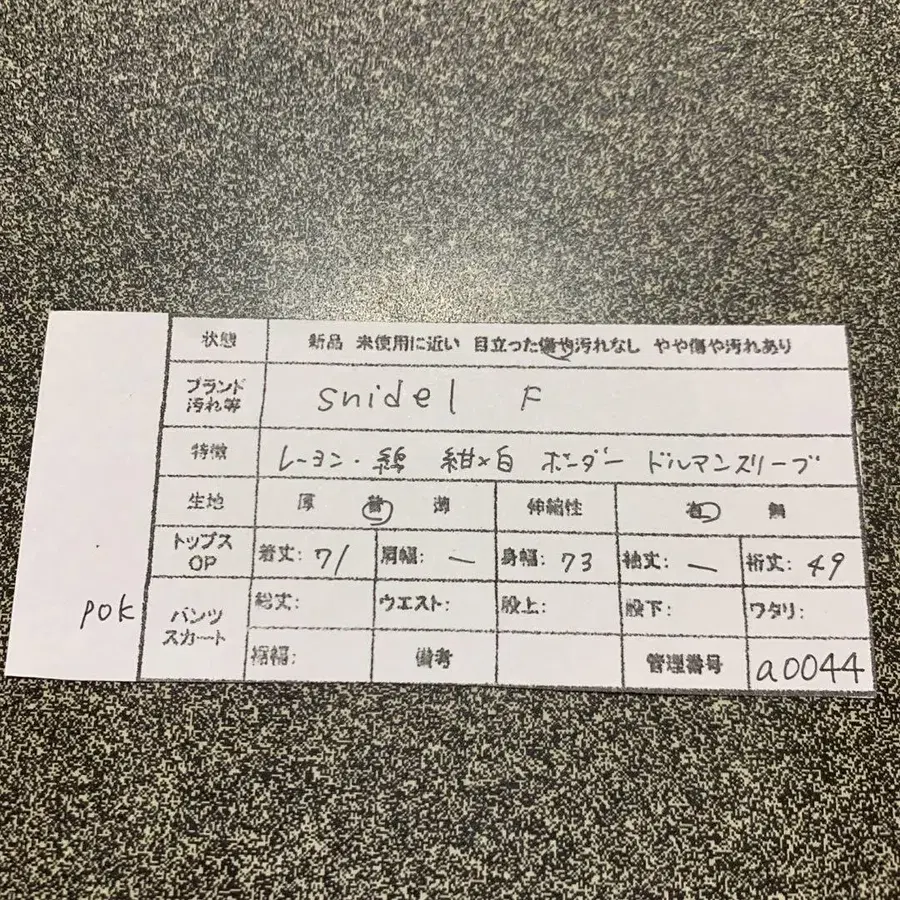 状態 新品 未使用に近い 目立った傷や汚れなし やや傷や汚れあり
ブランド
汚れ等
snidel F
特徴 レーヨン・綿 紺×白 ボーダー ドルマンスリーブ
生地 厚 普 薄 伸縮性 有 無
トップス
OP
着丈: 71 肩幅: ー 身幅: 73 袖丈: ー 裄丈: 49
パンツ
スカート
総丈: ウエスト: 股上: 股下: ワタリ:
裾幅: 備考 管理番号 a0044
pok